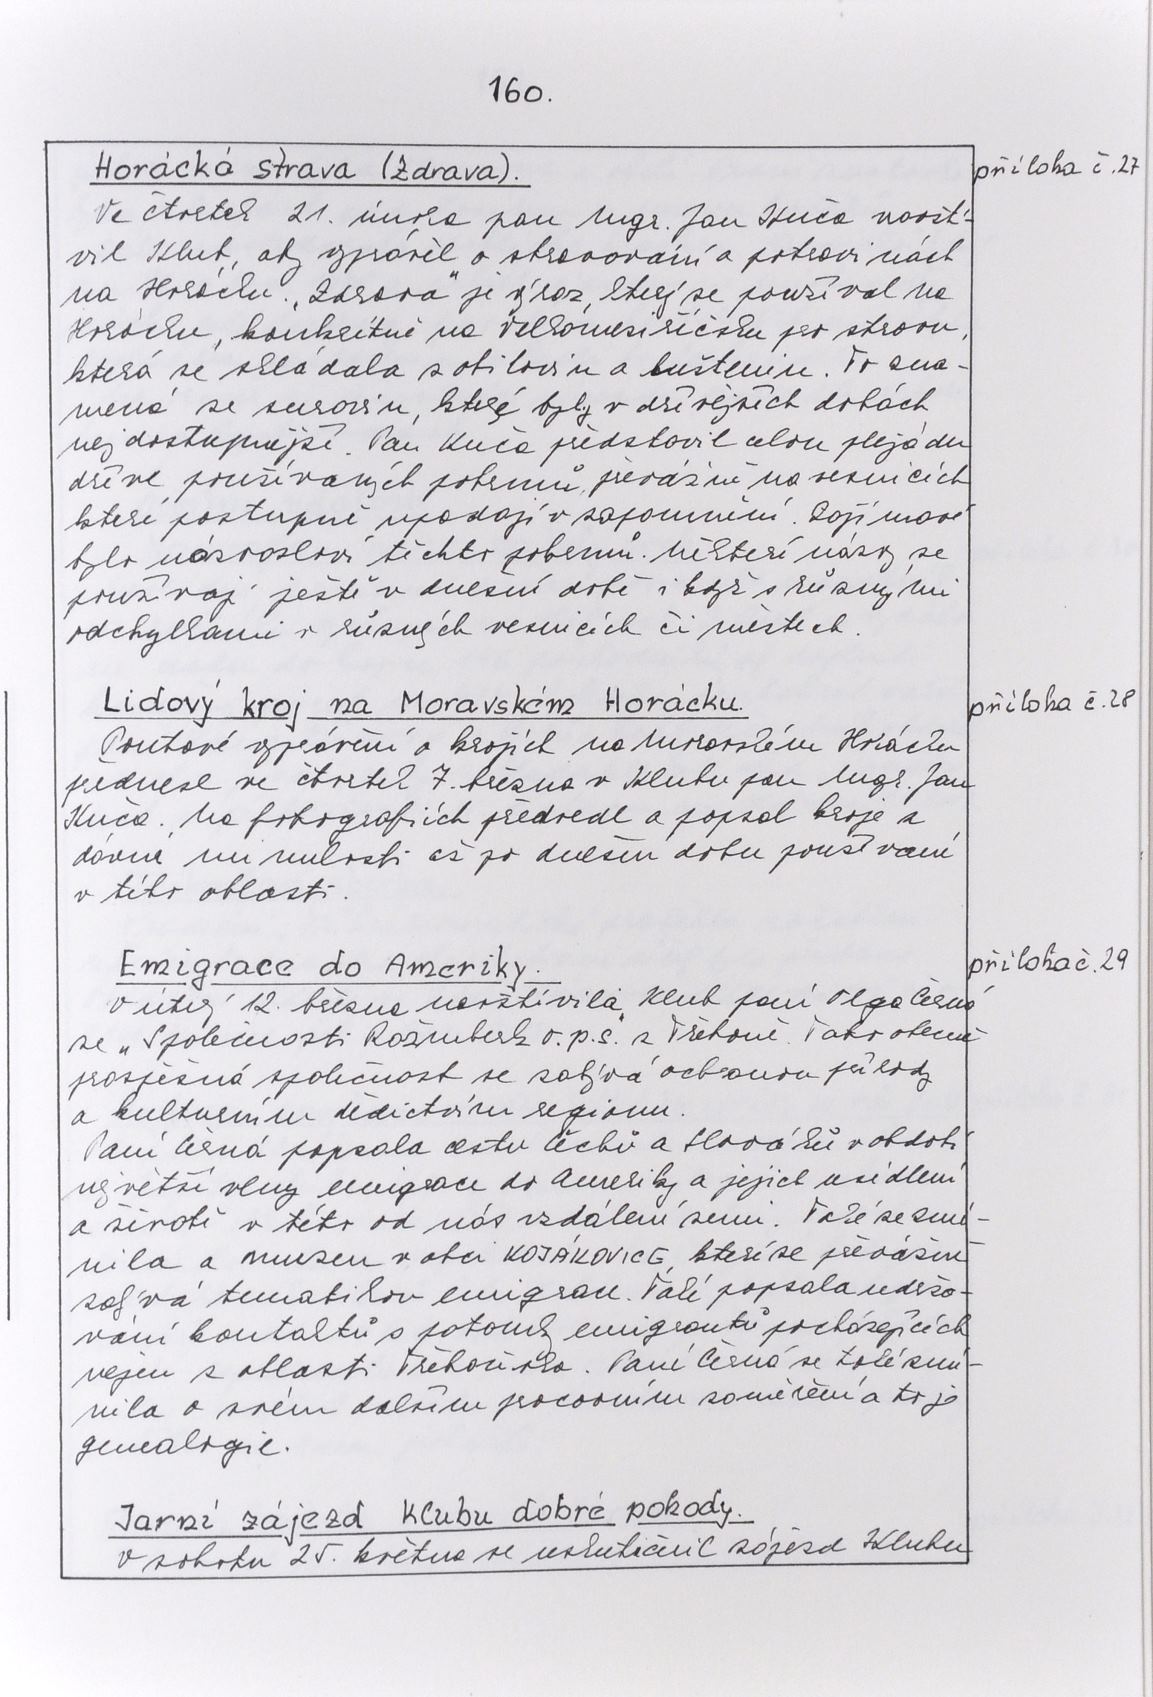 160.
Horácká strava (Zdrava).
příloha č. 27
Ve čtvrtek 21. února pan Mgr. Jan Kuča navští-
vil Klub, aby vyprávěl o stravování a potravinách
na Horácku. „Zdrava" je výraz, který se používal na
Horácku, konkrétně na Velkomeziříčsku pro stravu,
která se skládala z obilovin a luštenin. To zna-
mená ze surovin, které byly v dřívějších dobách
nejdostupnější. Pan Kuča představil celou plejádu
dříve používaných pokrmů, převážně na vesnicích
které postupně upadají v zapomnění. Zajímavé
bylo názvosloví těchto pokrmů. Některé názvy se
používají ještě v dnešní době i když s různými
odchylkami v různých vesnicích či městech.
Lidový kroj na Moravském Horácku.
příloha č. 28
Poutavé vyprávění o krojích na Moravském Horácku
přednesl ve čtvrtek 7. března v Klubu pan Mgr. Jan
Kuča. Na fotografiích předvedl a popsal kroje z
dávné minulosti až po dnešní dobu používané
v této oblasti.
Emigrace do Ameriky.
příloha č. 29
V úterý 12. března navštívila Klub paní Olga Černá
ze „Společnosti Rožmberk o.p.s." z Třeboně. Tato obecně
prospěšná společnost se zabývá ochranou přírody
a kulturním dědictvím regionu.
Paní Černá popsala cestu Čechů a Slováků v období
největší vlny emigrace do Ameriky a jejich usídlení
a životě v této od nás vzdálené zemi. Také se zmí-
nila o muzeu v obci KOJÁKOVICE, které se převážně
zabývá tematikou emigrace. Také popsala udržo-
vání kontaktů s potomky emigrantů pocházejících
nejen z oblasti Třeboňska. Paní Černá se také zmí-
nila o svém dalším pracovním zaměření a to je
genealogie.
Jarní zájezd Klubu dobré pohody.
V sobotu 25. května se uskutečnil zájezd Klubu